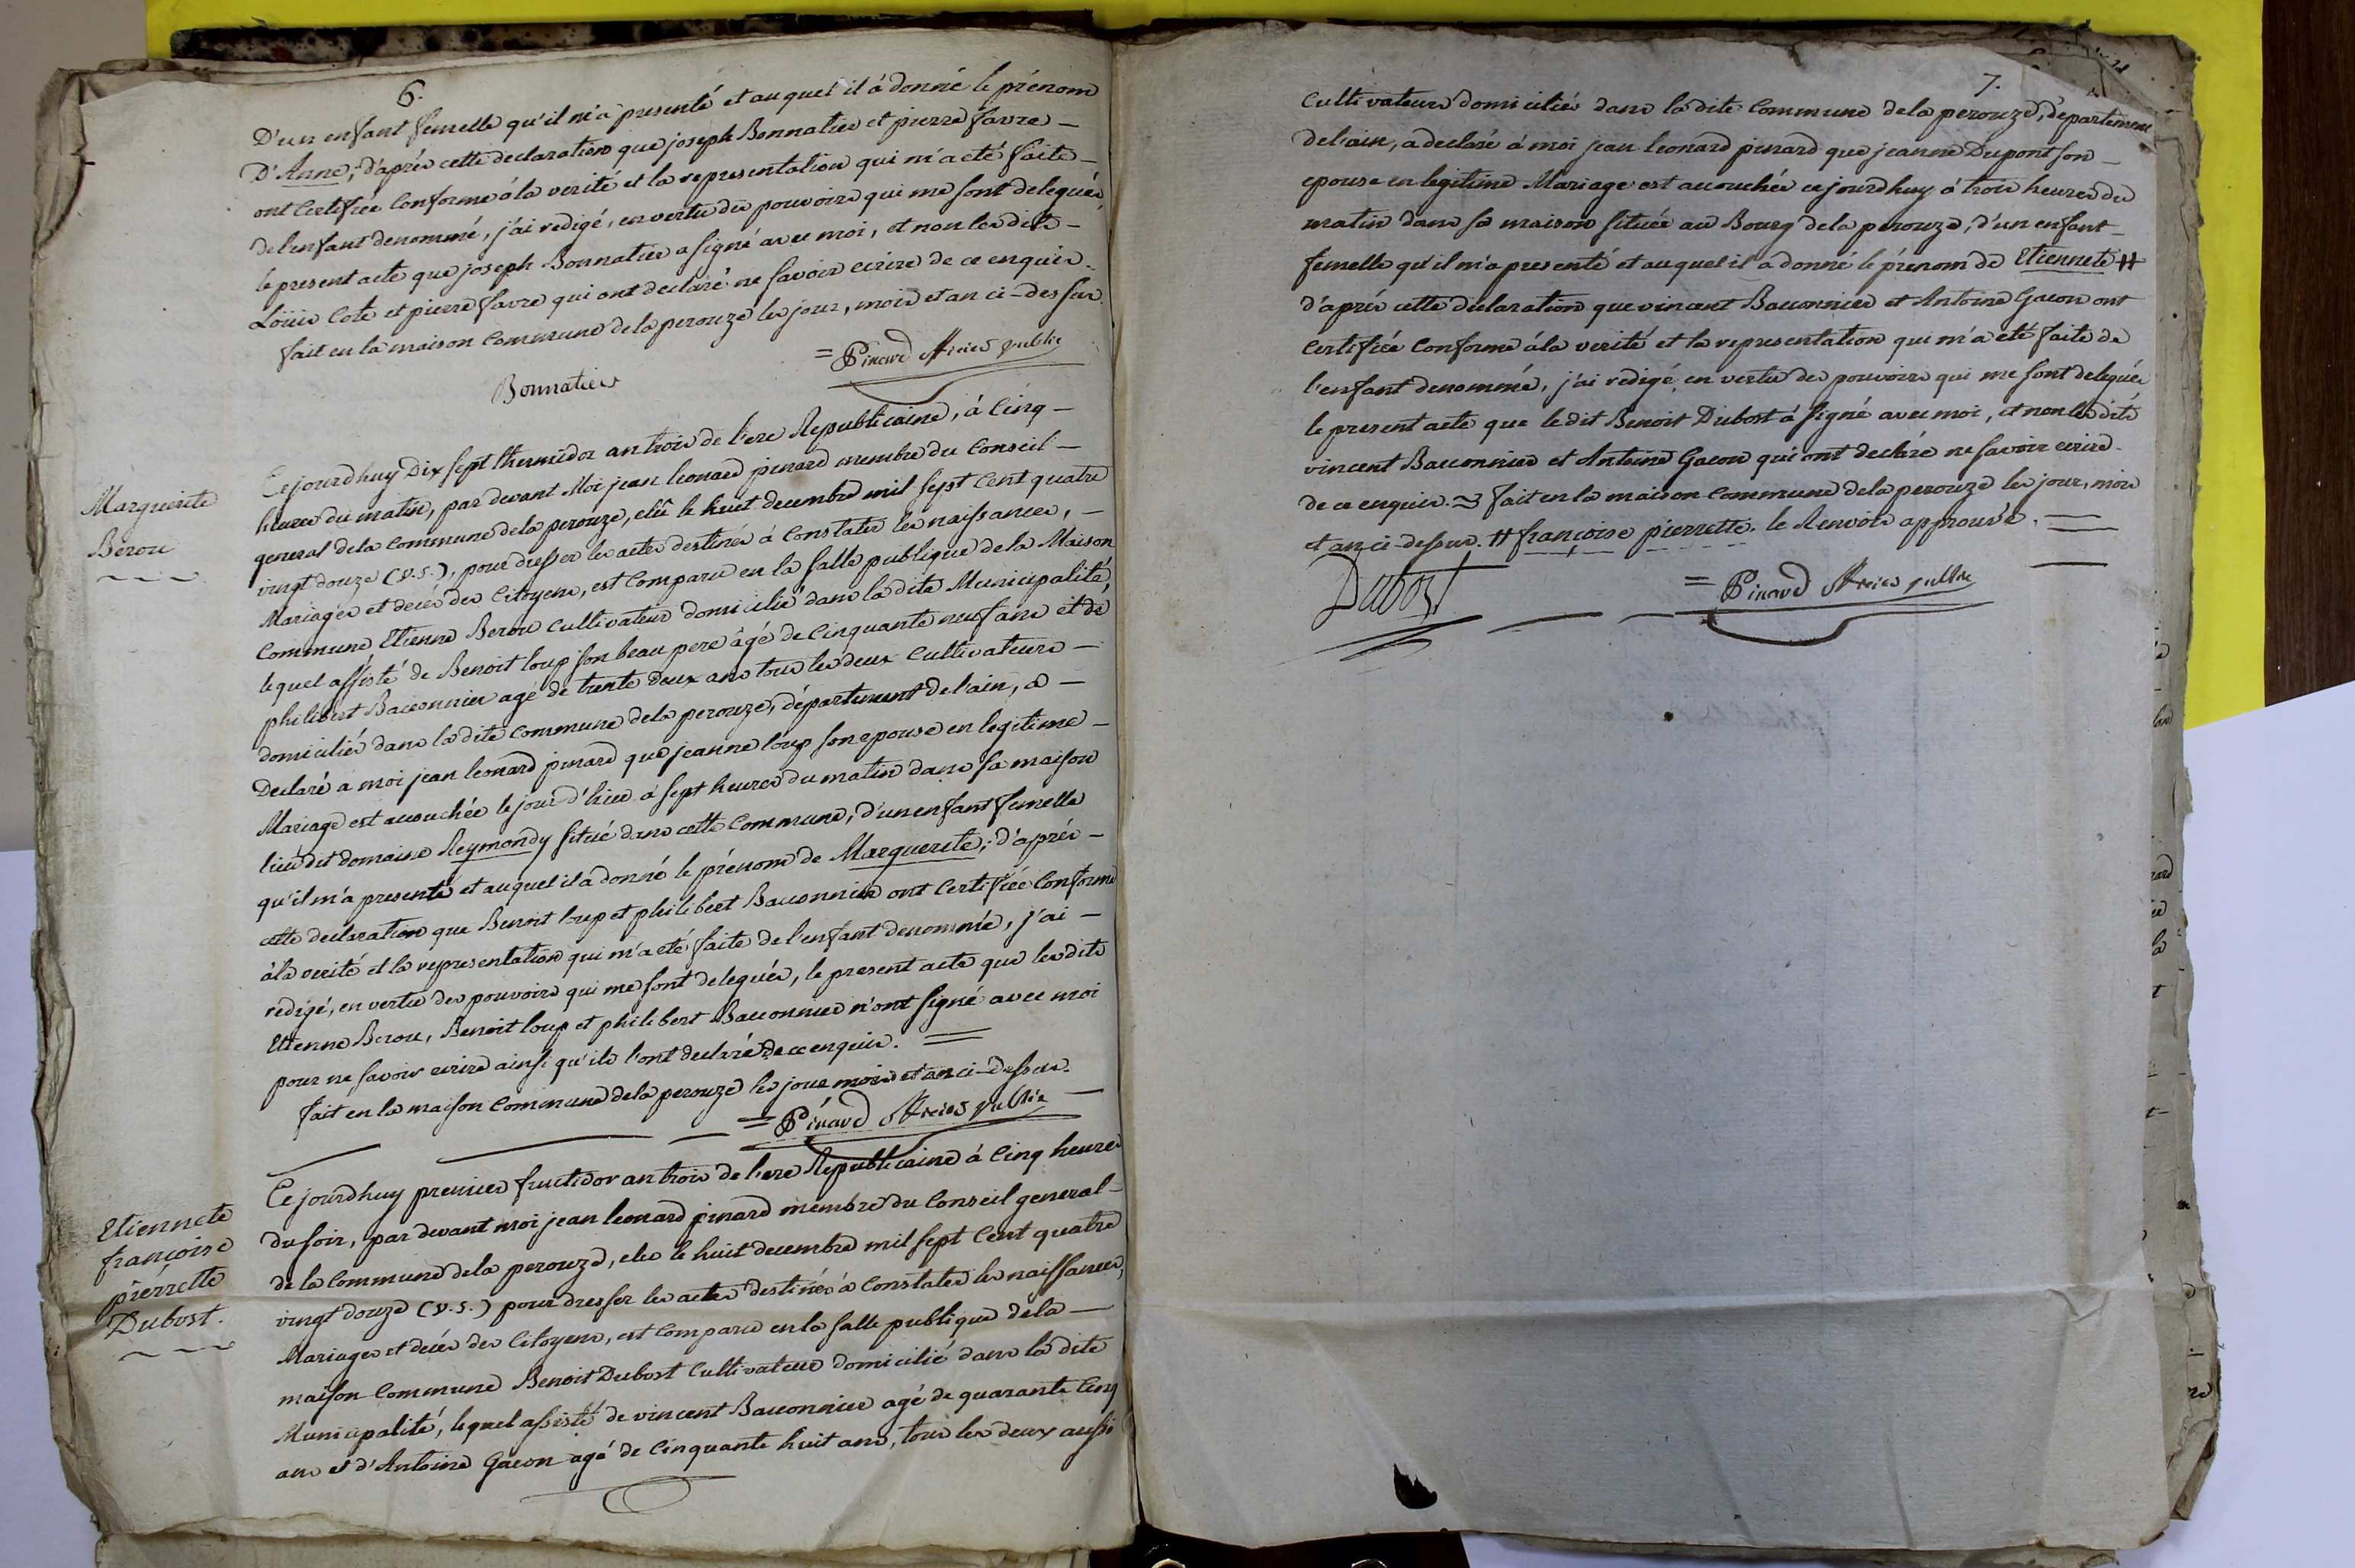 6.
D'un enfant femelle qu'il m'a presenté et auquel il a donné le prénom
D'Anne; d'après cette declaration que joseph Bonnatier et pierre favre –
ont Certifiée Conforme à la verité et la representation qui m'a eté faite –
de l'enfant denommé, j'ai redigé, en vertu des pouvoirs qui me sont delegués,
le present acte que joseph Bonnatier a signé avec moi, et non les dits –
Loüis Cote et pierre favre qui ont declaré ne savoir ecrire de ce enquis.
fait en la maison Commune de la perouze les jour, mois et an ci-dessus.
Bonnatier
= Pinard officier public
Marguerite
Berou
Cejourdhuy Dix sept thermidor an trois de l'ere Republicaine, à Cinq –
heures du matin, par devant Moi jean leonard pinard membre du Conseil –
general de la Commune de la perouze, elû le huit decembre mil sept Cent quatre
vingt douze (v.s.), pour dresser les actes destinés à Constater les naissances, –
Mariages et decès des Citoyens, est Comparu en la salle publique de la Maison
Commune Etienne Berou Cultivateur domicilié dans la dite Municipalité,
lequel assisté de Benoit loup son beau pere âgé de Cinquante neuf ans et de
philibert Bacconnier agé de trente deux ans tous les deux Cultivateurs –
domiciliés dans la dite Commune de la perouze, département de l'ain, a –
Declaré a moi jean leonard pinard que jeanne loup son epouse en legitime –
Mariage est accouchée le jour d'hier à sept heures du matin dans sa maison
lieu dit domaine Reymondy situé dans cette Commune, d'un enfant femelle
qu'il m'a presenté et auquel il a donné le prénom de Marguerite; d'après –
cette declaration que Benoit loup et philibert Bacconnier ont Certifiée Conforme
à la verité et la representation qui m'a eté faite de l'enfant denommé, j'ai –
redigé, en vertu des pouvoirs qui me sont delegués, le present acte que les dits
Etienne Berou, Benoit loup et philibert Bacconnier n'ont signé avec moi
pour ne savoir ecrire ainsi qu'ils l'ont declaré de ce enquis. =
fait en la maison Commune de la perouze les jour mois et an ci-dessus.
= Pinard officier public
Etiennete
françoise
pierrette
Dubost.
Cejourdhuy premier fructidor an trois de l'ere Republicaine à Cinq heures
du soir, par devant moi jean leonard pinard membre du Conseil general –
de la Commune de la perouze, elu le huit decembre mil sept Cent quatre
vingt douze (v.s.) pour dresser les actes destinés à Constater les naissances,
Mariages et decès des Citoyens, est Comparu en la salle publique de la –
maison Commune Benoit Dubost Cultivateur domicilié dans la dite
Municipalité, lequel assisté de vincent Bacconnier agé de quarante Cinq
ans et d'Antoine Gacon agé de Cinquante huit ans, tous les deux aussi
7.
Cultivateurs domiciliés dans la dite Commune de la perouze, département
de l'ain, a declaré à moi jean leonard pinard que jeanne Dupont son –
epouse en legitime Mariage est accouchée cejourdhuy à trois heures du
matin dans sa maison située au Bourg de la perouze, d'un enfant –
femelle qu'il m'a presenté et auquel il a donné le prénom de Etiennete #
d'après cette declaration que vincent Bacconnier et Antoine Gacon ont
Certifiée Conforme à la verité et la representation qui m'a eté faite de
l'enfant denommé, j'ai redigé en vertu des pouvoirs qui me sont delegués
le present acte que le dit Benoit Dubost à signé avec moi, et non les dits
vincent Bacconnier et Antoine Gacon qui ont declaré ne savoir ecrire
de ce enquis. fait en la maison Commune de la perouze les jour, mois
et an ci-dessus. # françoise pierrette. le Renvois approuvé. =
Dubost
= Pinard officier public